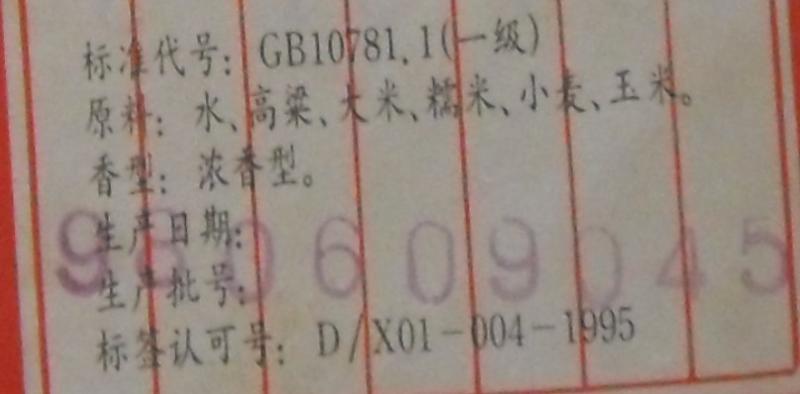 标准代号：GB10781.1(一级)
原料：水、高粱、大米、糯米、小麦、玉米。
香型：浓香型。
生产日期：
980609045
生产批号：
标签认可号：D/X01-004-1995